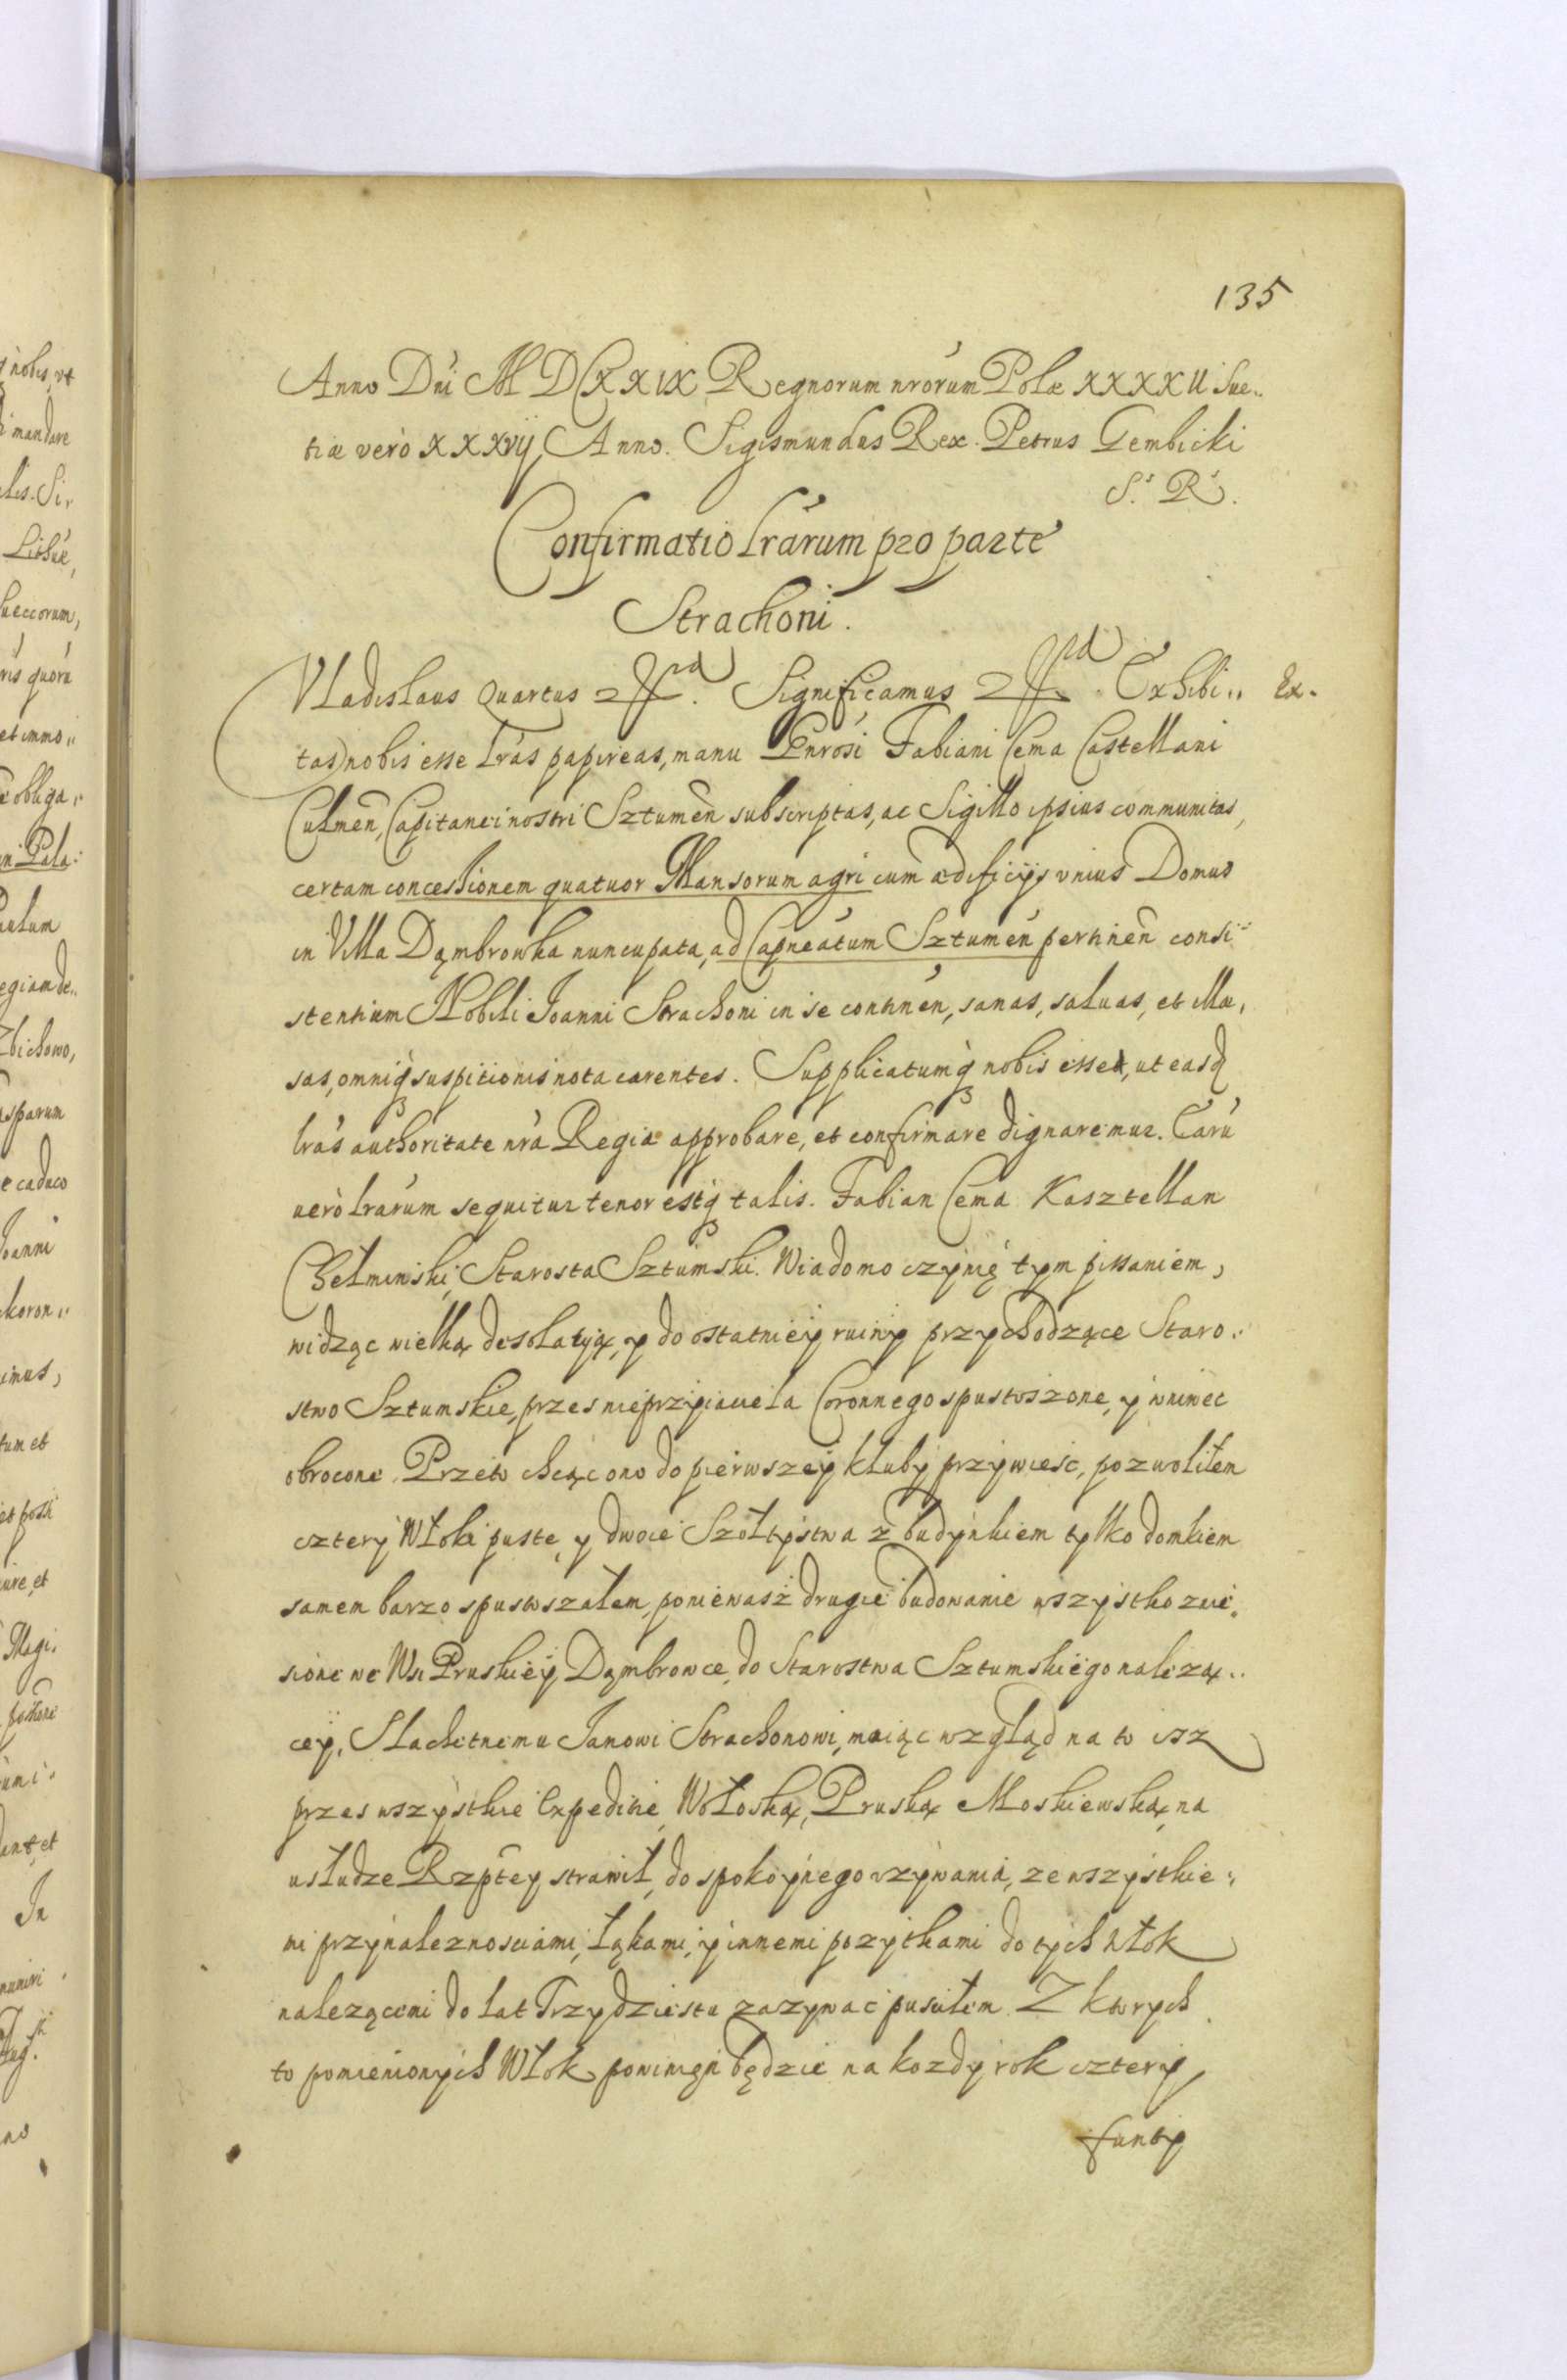 135
Anno Dńi MDCXXIX Regnorum nrórum Polæ XXXXII Sue„
tiæ verò XXXVIJ Anno. Sigismundus Rex. Petrus Gembicki
S. R.
Confirmatio lrárum pro parte
Strachoni.
Vladislaus Quartus Significamus Exhibi„ Ex.
tas nobis esse lrás papireas, manu Gnrosi Fabiani Cema Castellani
Culmeń, Capitanei nostri Sztumeń subscriptas, ac Sigillo ipsius communitas,
certam concessionem quatuor Mansorum agri cum ædificijs unius Domus
in Villa Dąmbrowka nuncupata, ad Capneátum Sztumeń pertineń consi„
stentium Nobili Joanni Strachoni in se contineń, sanas, saluas, et illæ,
sas, omniq suspitionis nota carentes. Supplicatumq nobis esset, ut easd
lrás authoritate nrá Regia approbare, et confirmare dignaremur. Earú
uerò lrárum sequitur tenor estq talis. Fabian Cema Kasztellan
Chełminski, Starosta Sztumski. Wiadomo czynię tym pissaniem,
widząc wielką desolatią, y do ostatniey ruiny przychodzące Staro„
stwo Sztumskie, przes nieprzyiaciela Coronnego spustoszone, y wniwec
obrocone. Przeto chcąc ono do pierwszey kluby przywiesc, pozwoliłem
cztery Włoki puste, y dwoie Szołtystwa z budynkiem tylko domkiem
samem barzo spustoszałem, poniewasz drugie budowanie wszystko znie„
sione we Wsi Pruskiey Dąmbrowce, do Starostwa Sztumskiego nalezą„
cey, Slachetnemu Janowi Strachonowi, maiąc wzgląd na to isz
przes wszystkie Expeditie, Wołoską, Pruską Moskiewską, na
usłudze Rzptey strawił, do spokoynego uzywania, ze wszystkie„
mi przynaleznosciami, łąkami, y innemi pozytkami do tych włok
nalezącemi do lat Trzydziestu zazywac pusciłem. Z ktorych
to pomienionych Włok powinięn będzie na kozdy rok cztery
funty